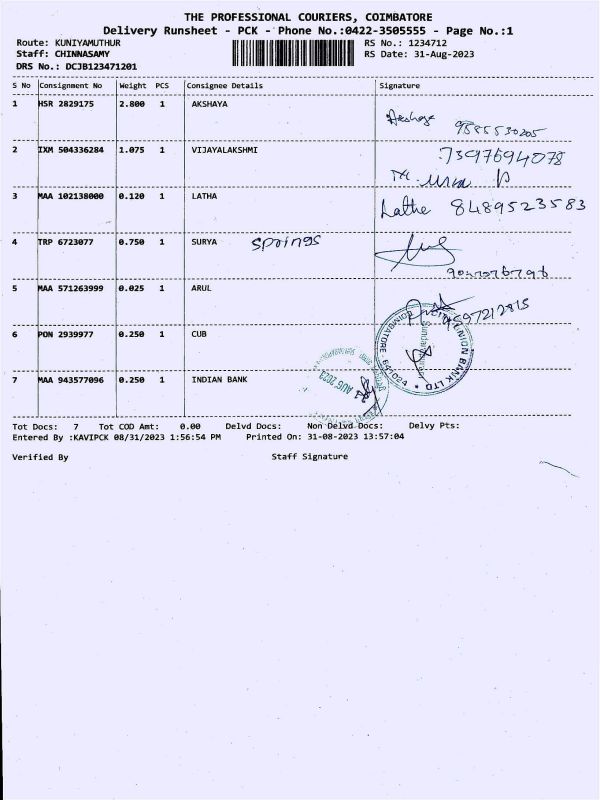 THE PROFESSIONAL COURIERS, COIMBATORE
Delivery Runsheet - PCK - Phone No.:0422-3505555 - Page No.:1
Route: KUNIYAMUTHUR RS No.: 1234712
Staff: CHINNASAMY RS Date: 31-Aug-2023
DRS No.: DCJB123471201
S No Consignment No Weight PCS Consignee Details Signature
1 HSR 2829175 2.800 1 AKSHAYA
9885530205
2 IXM 504336284 1.075 1 VIJAYALAKSHMI
7397694078
3 MAA 102138000 0.120 1 LATHA Lathe 8489523583
4 TRP 6723077 0.750 1 SURYA springs
5 MAA 571263999 0.025 1 ARUL
6 PON 2939977 0.250 1 CUB
COIMBATORE 641024 UNION BANK LTD
7 MAA 943577096 0.250 1 INDIAN BANK
AUG 2023
Tot Docs: 7 Tot COD Amt: 0.00 Delvd Docs: Non Delvd Docs: Delvy Pts:
Entered By :KAVIPCK 08/31/2023 1:56:54 PM Printed On: 31-08-2023 13:57:04
Verified By Staff Signature